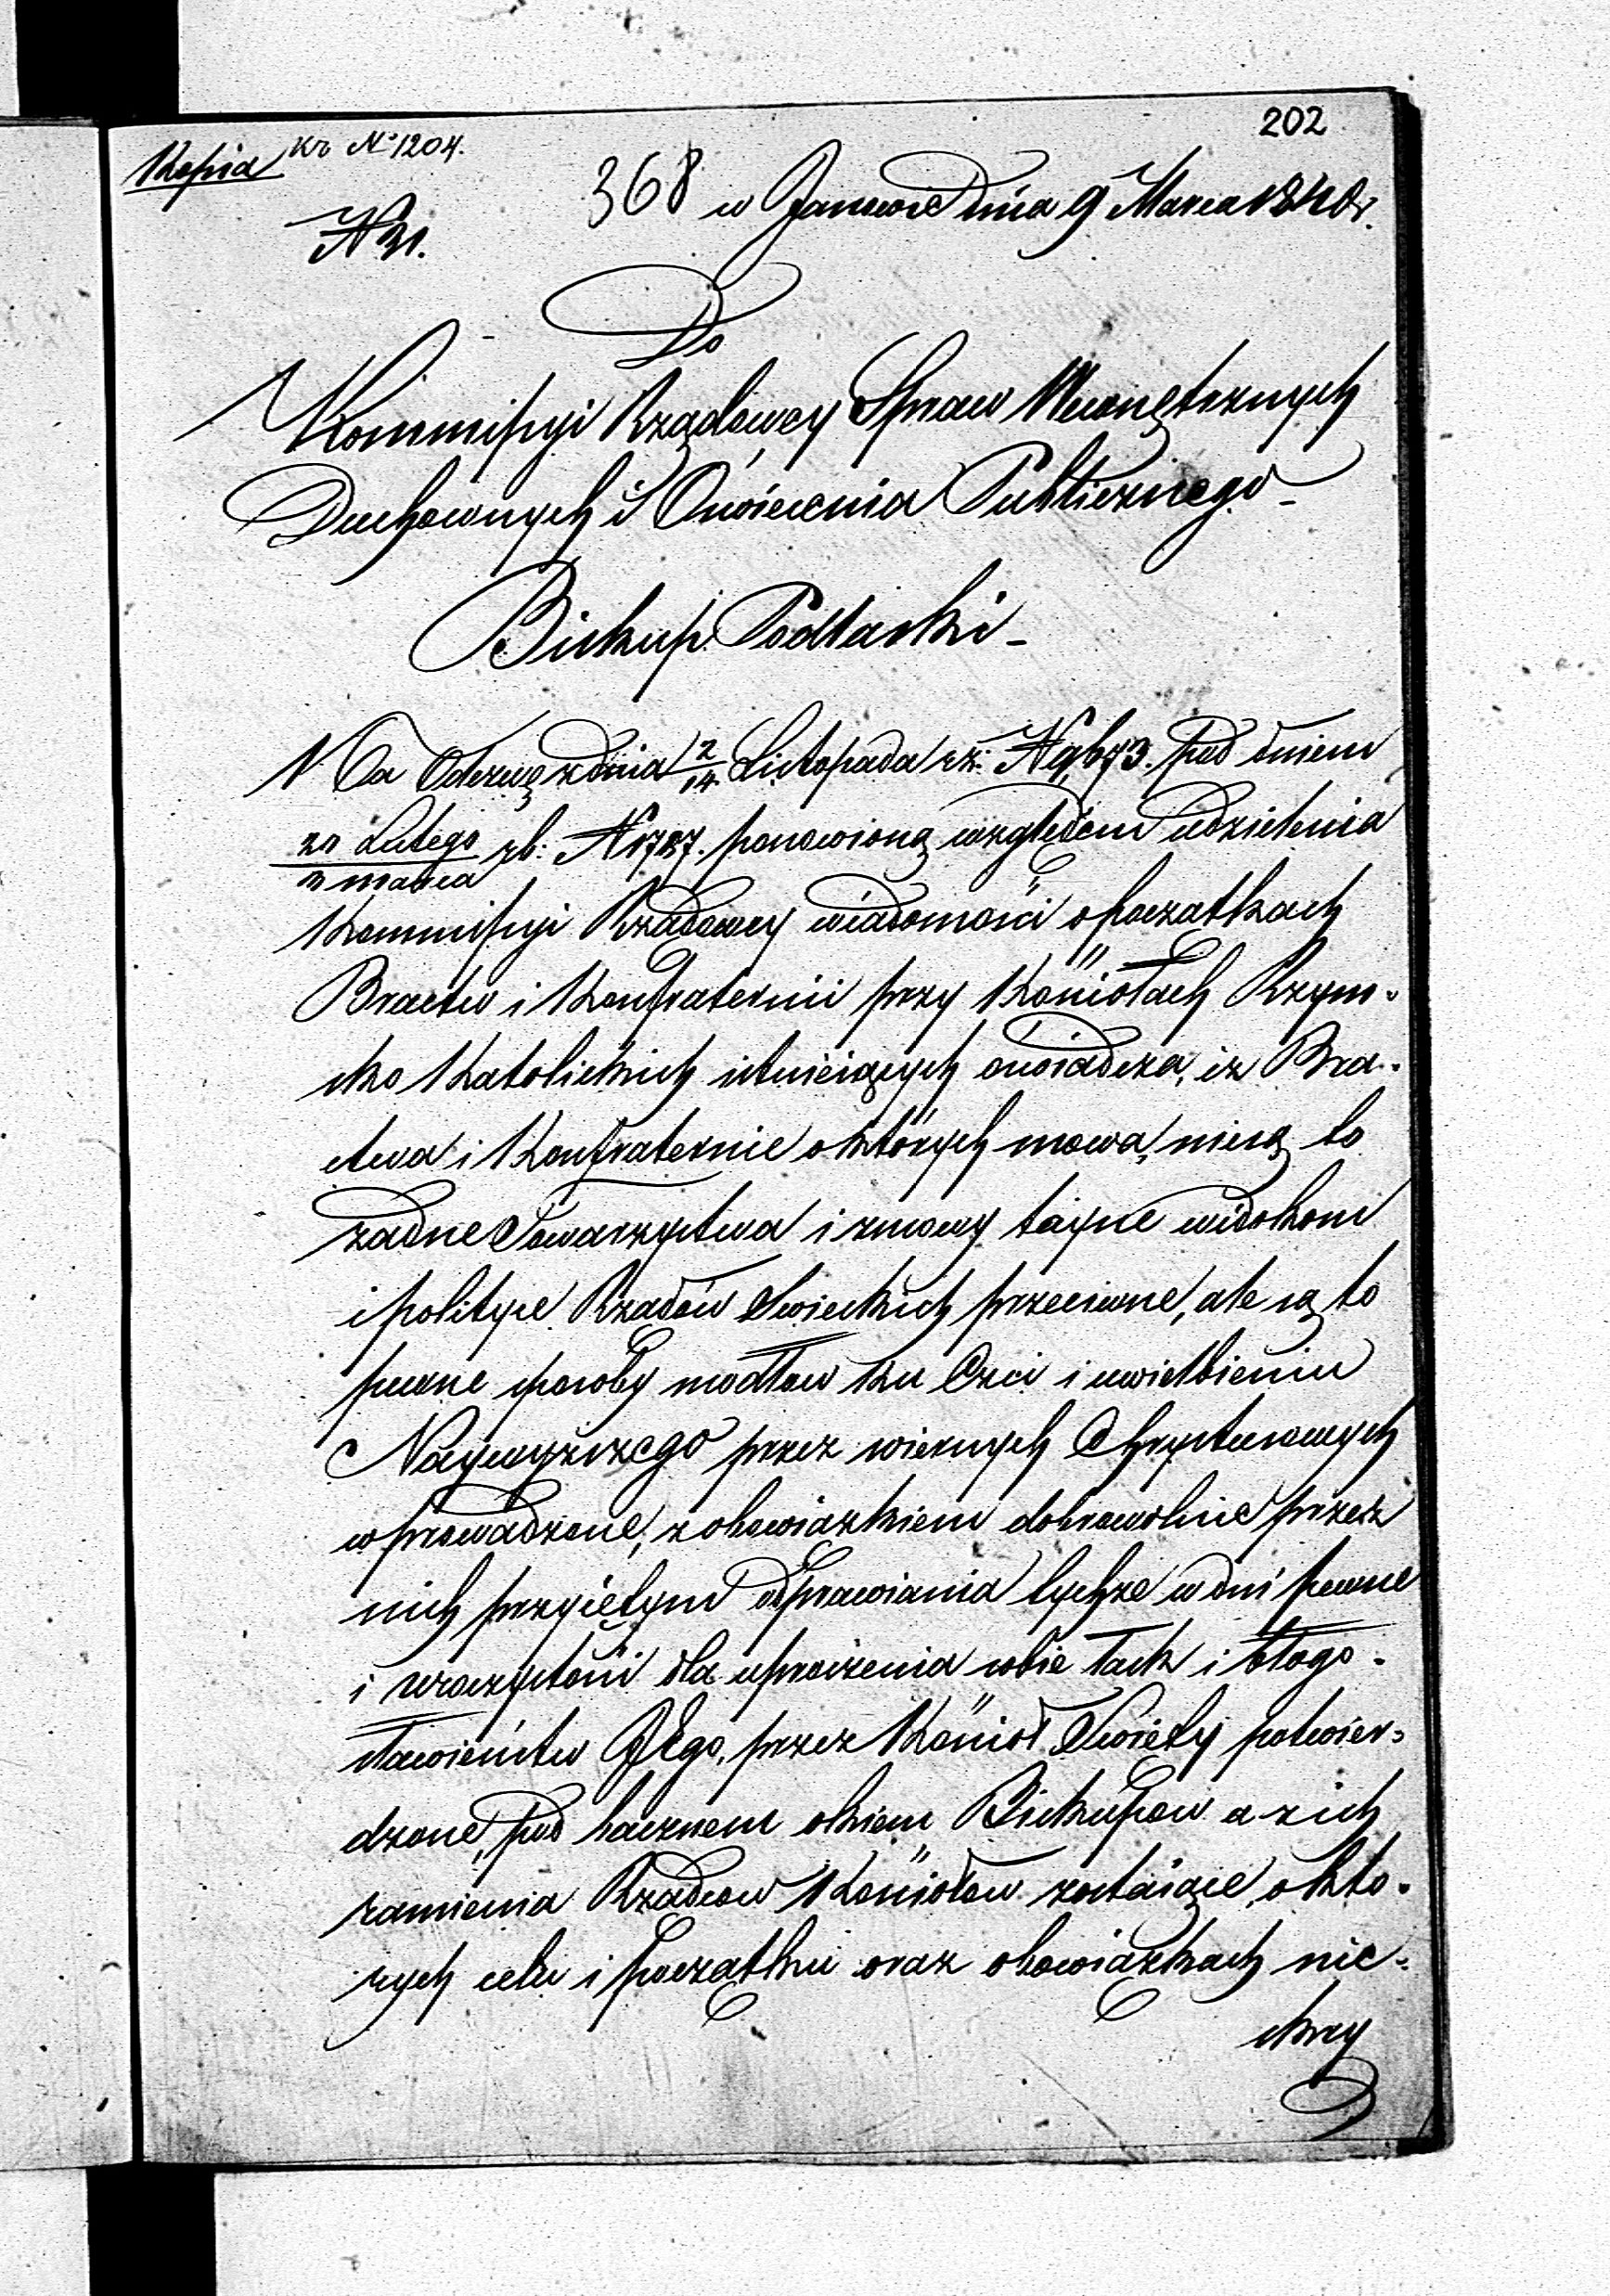 202
Kopia Kr Nº 1204.
368 w Janowie dnia 9 Marca 1840 r.
N 31.
Do
Kommissyi Rządowey Spraw Wewnętrznych
Duchownych i Oświecenia Publicznego -
Biskup Podlaski -
Na Odezwę z dnia 2/14 Listopada rz: N 9,673. pod dniem
20 Lutego/3 marca rb: N 1787. ponowioną względem udzielenia
Kommissyi Rządowey wiadomości o początkach
Bractw i Konfraternii przy Kościołach Rzym-
sko Katolickich istnieiących oświadcza, iż Bra-
ctwa i Konfraternie o których mowa, nie są to
żadne Towarzystwa i zmowy tayne widokom
i polityce Rządów Swieckich przeciwne, ale są to
pewne sposoby modłow ku Czci i uwielbieniu
Naywyższego przez wiernych Chrystusowych
wprowadzone, z obowiązkiem dobrowolnie przez
nich przyiętym odprawiania tychże w dni pewne
i uroczystości dla uproszenia sobie łask i błogo-
sławieństw JEgo, przez Kościoł Swięty potwier-
dzone, pod bacznem okiem Biskupow a z ich
ramienia Rządcow Kościołow zostaiące, o któ-
rych celu i początku oraz obowiązkach nie-
skory